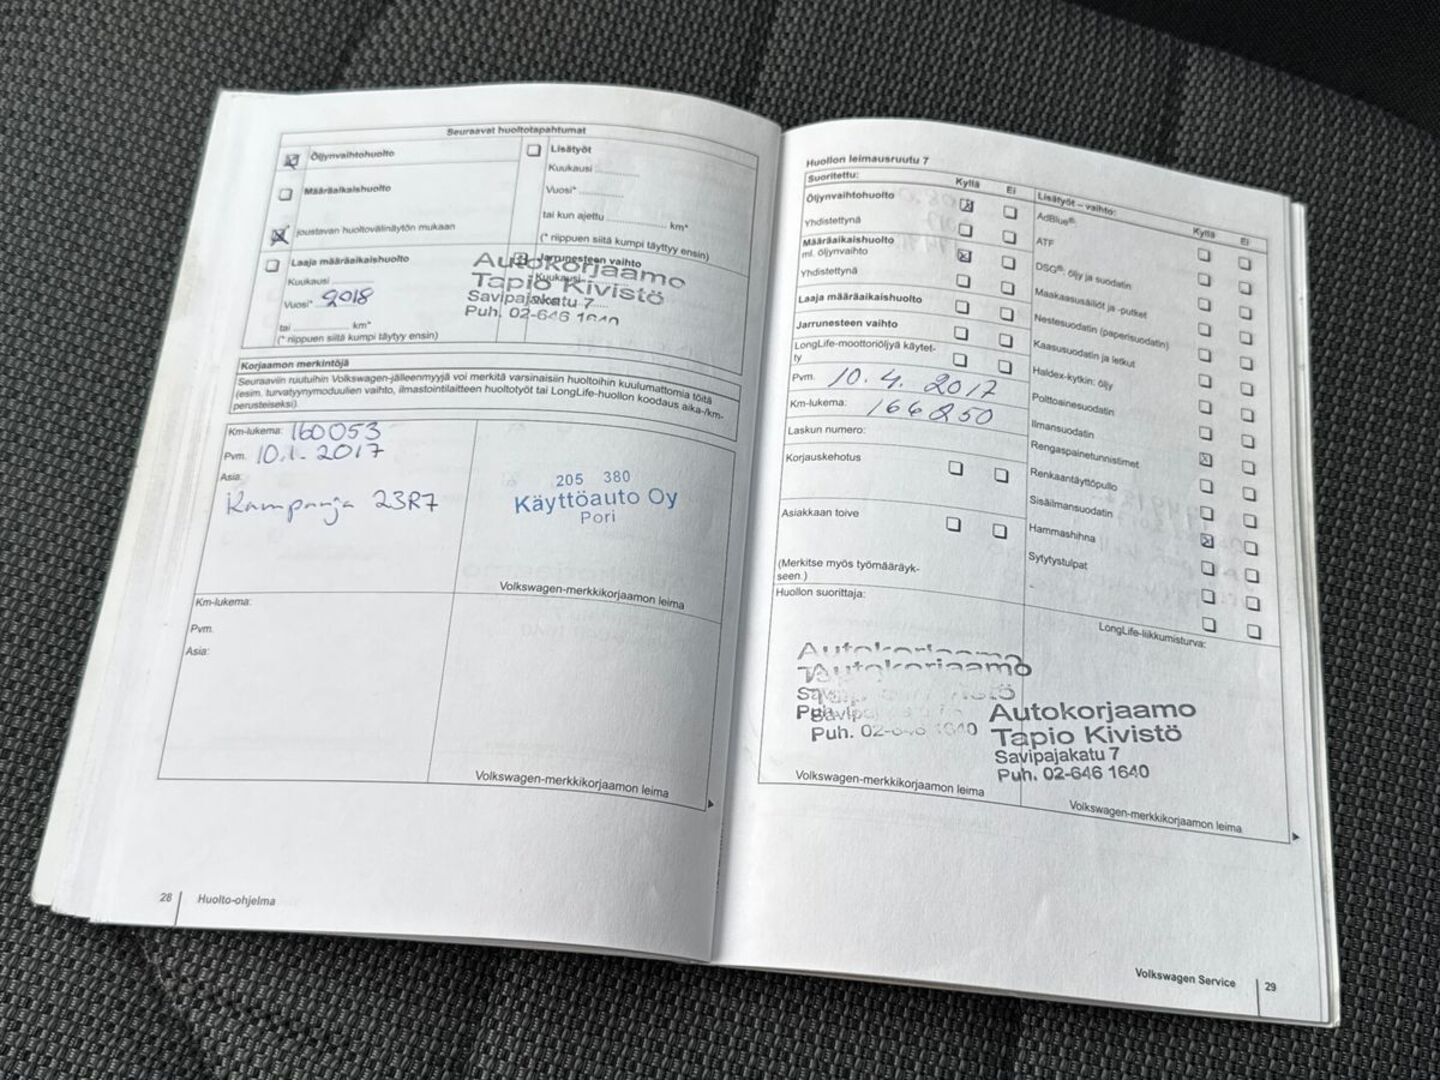 Seuraavat huoltotapahtumat
Öljynvaihtohuolto
Määräaikaishuolto
joustavan huoltovälinäytön mukaan
Laaja määräaikaishuolto
Kuukausi
Vuosi* 2018
tai km*
(* riippuen siitä kumpi täytyy ensin)
Lisätyöt
Kuukausi
Vuosi*
tai kun ajettu km*
(* riippuen siitä kumpi täytyy ensin)
Jarrunesteen vaihto
Kuukausi
Autokorjaamo
Tapio Kivistö
Savipajakatu 7
Puh. 02-646 1640
Korjaamon merkintöjä
Seuraaviin ruutuihin Volkswagen-jälleenmyyjä voi merkitä varsinaisiin huoltoihin kuulumattomia töitä
(esim. turvatyynymoduulien vaihto, ilmastointilaitteen huoltotyöt tai LongLife-huollon koodaus aika-/km-
perusteiseksi).
Km-lukema: 160053
Pvm. 10.1.2017
Asia:
Kampanja 23R7
205 380
Käyttöauto Oy
Pori
Volkswagen-merkkikorjaamon leima
Km-lukema:
Pvm.
Asia:
Volkswagen-merkkikorjaamon leima
28 Huolto-ohjelma
Huollon leimausruutu 7
Suoritettu: Kyllä Ei
Öljynvaihtohuolto
Yhdistettynä
Määräaikaishuolto
ml. öljynvaihto
Yhdistettynä
Laaja määräaikaishuolto
Jarrunesteen vaihto
LongLife-moottoriöljyä käytet-
ty
Pvm. 10.4.2017
Km-lukema: 166250
Laskun numero:
Korjauskehotus
Asiakkaan toive
(Merkitse myös työmääräyk-
seen.)
Huollon suorittaja:
Lisätyöt – vaihto: Kyllä Ei
AdBlue®:
ATF
DSG®: öljy ja suodatin
Maakaasusäiliöt ja -putket
Nestesuodatin (paperisuodatin)
Kaasusuodatin ja letkut
Haldex-kytkin: öljy
Polttoainesuodatin
Ilmansuodatin
Rengaspainetunnistimet
Renkaantäyttöpullo
Sisäilmansuodatin
Hammashihna
Sytytystulpat
-
LongLife-liikkumisturva:
Autokorjaamo
Autokorjaamo
Puh. 02-646 1640
Autokorjaamo
Tapio Kivistö
Savipajakatu 7
Puh. 02-646 1640
Volkswagen-merkkikorjaamon leima
Volkswagen-merkkikorjaamon leima
Volkswagen Service 29